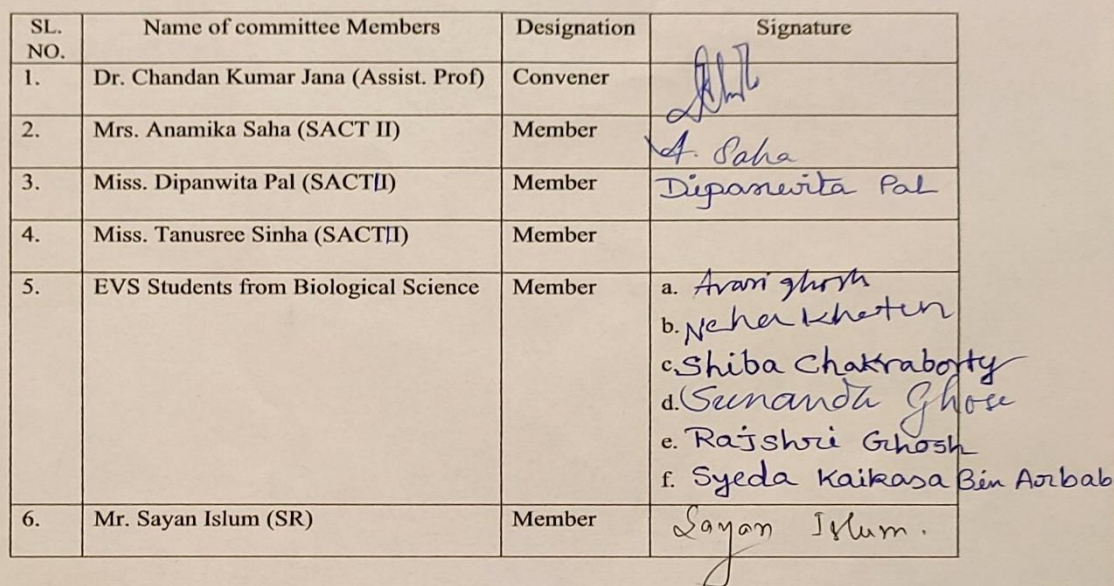 SL. NO. Name of committee Members Designation Signature
1. Dr. Chandan Kumar Jana (Assist. Prof) Convener
2. Mrs. Anamika Saha (SACT II) Member A. Saha
3. Miss. Dipanwita Pal (SACTII) Member Dipanwita Pal
4. Miss. Tanusree Sinha (SACTII) Member
5. EVS Students from Biological Science Member a. Avani ghosh
b. Neha Khatun
c. Shiba Chakraborty
d. Sunanda Ghose
e. Rajshri Ghosh
f. Syeda Kaikasa Bin Aorbab
6. Mr. Sayan Islum (SR) Member Sayan Islum.